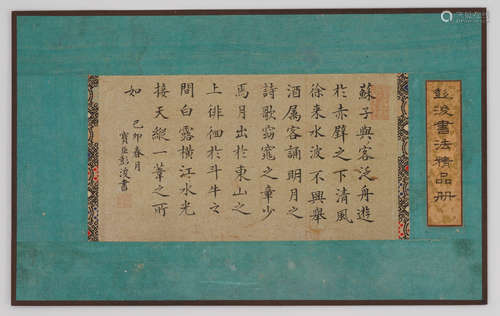 彭浚書法精品册
蘇子與客泛舟遊
於赤壁之下清風
徐來水波不興舉
酒属客誦明月之
詩歌窈窕之章少
焉月出於東山之
上徘徊於斗牛之
間白露横江水光
接天縱一葦之所
如
己卯春月
寶臣彭浚書